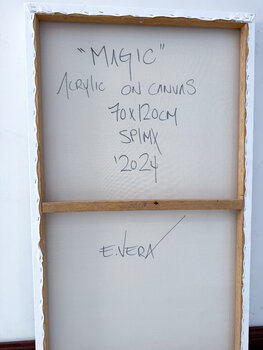 "MAGIC"
ACRYLIC ON CANVAS
70x120CM
SPIMX
'2024
E.VERA